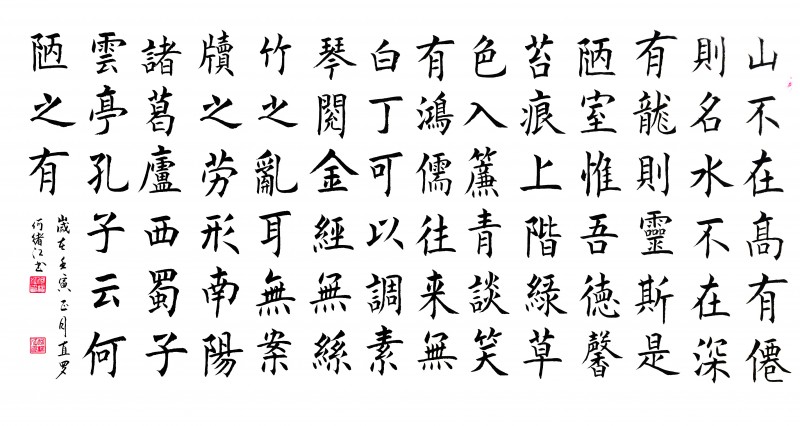 山不在髙有僊
則名水不在深
有龍則靈斯是
陋室惟吾德馨
苔痕上階綠草
色入簾青談笑
有鴻儒往来無
白丁可以調素
琴閱金經無絲
竹之亂耳無案
牘之劳形南陽
諸葛廬西蜀子
雲亭孔子云何
陋之有
歲在壬寅正月
何绪江书